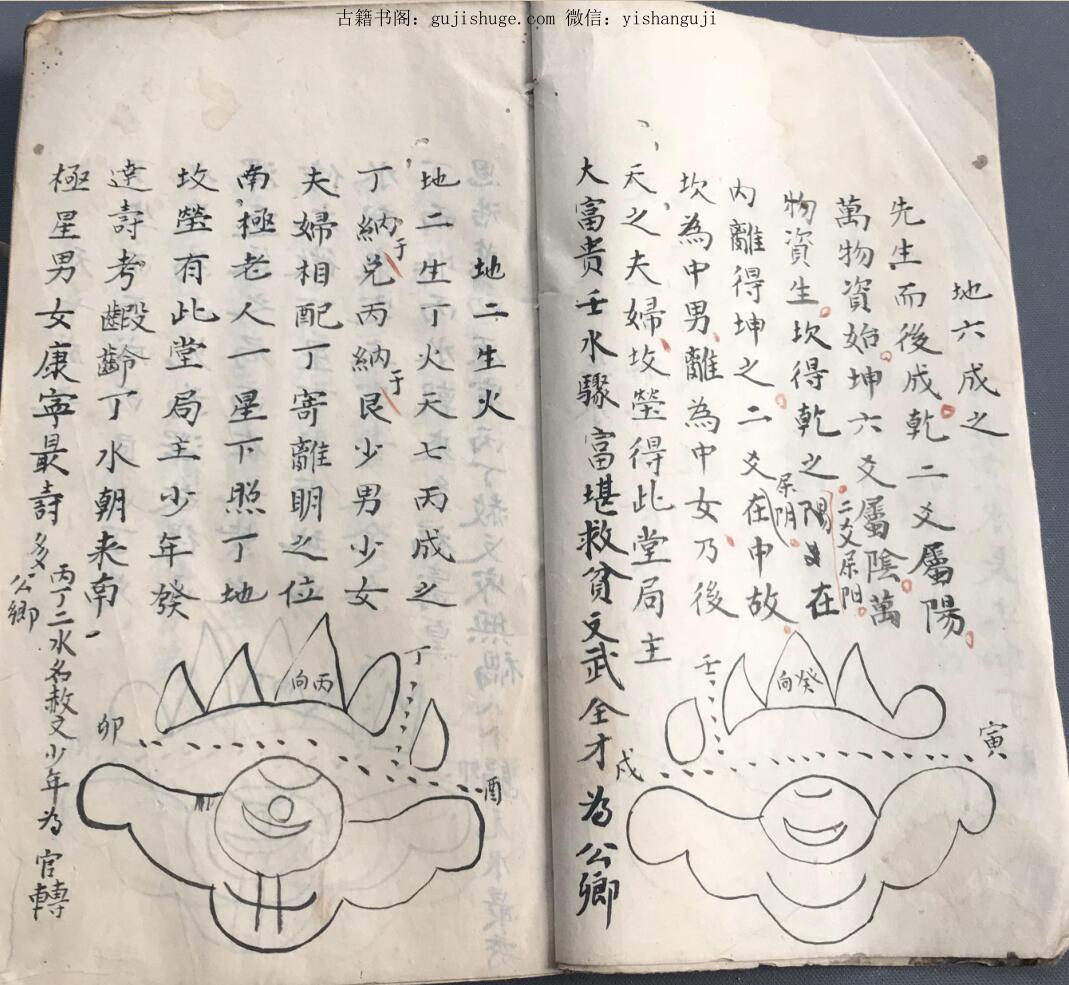 古籍书阁：gujishuge.com 微信：yishanguji
地六成之
先生而後成乾二爻屬陽
萬物資始坤六爻屬陰萬
物資生坎得乾之陽爻在
二爻屎阳
内離得坤之二爻在中故
屎阴
坎為中男離為中女乃後
天之夫婦坟塋得此堂局主
大富贵壬水驟富堪救貧文武全才為公卿
壬
癸向
戌
寅
地二生火
地二生丁火天七丙成之
丁納于兑丙納于艮少男少女
夫婦相配丁寄離明之位
南極老人一星下照丁地
坟塋有此堂局主少年發
達壽考齦齡丁水朝来南
極星男女康寧最壽多公卿
丙丁二水名赦文少年為官轉
丁
丙向
卯
酉